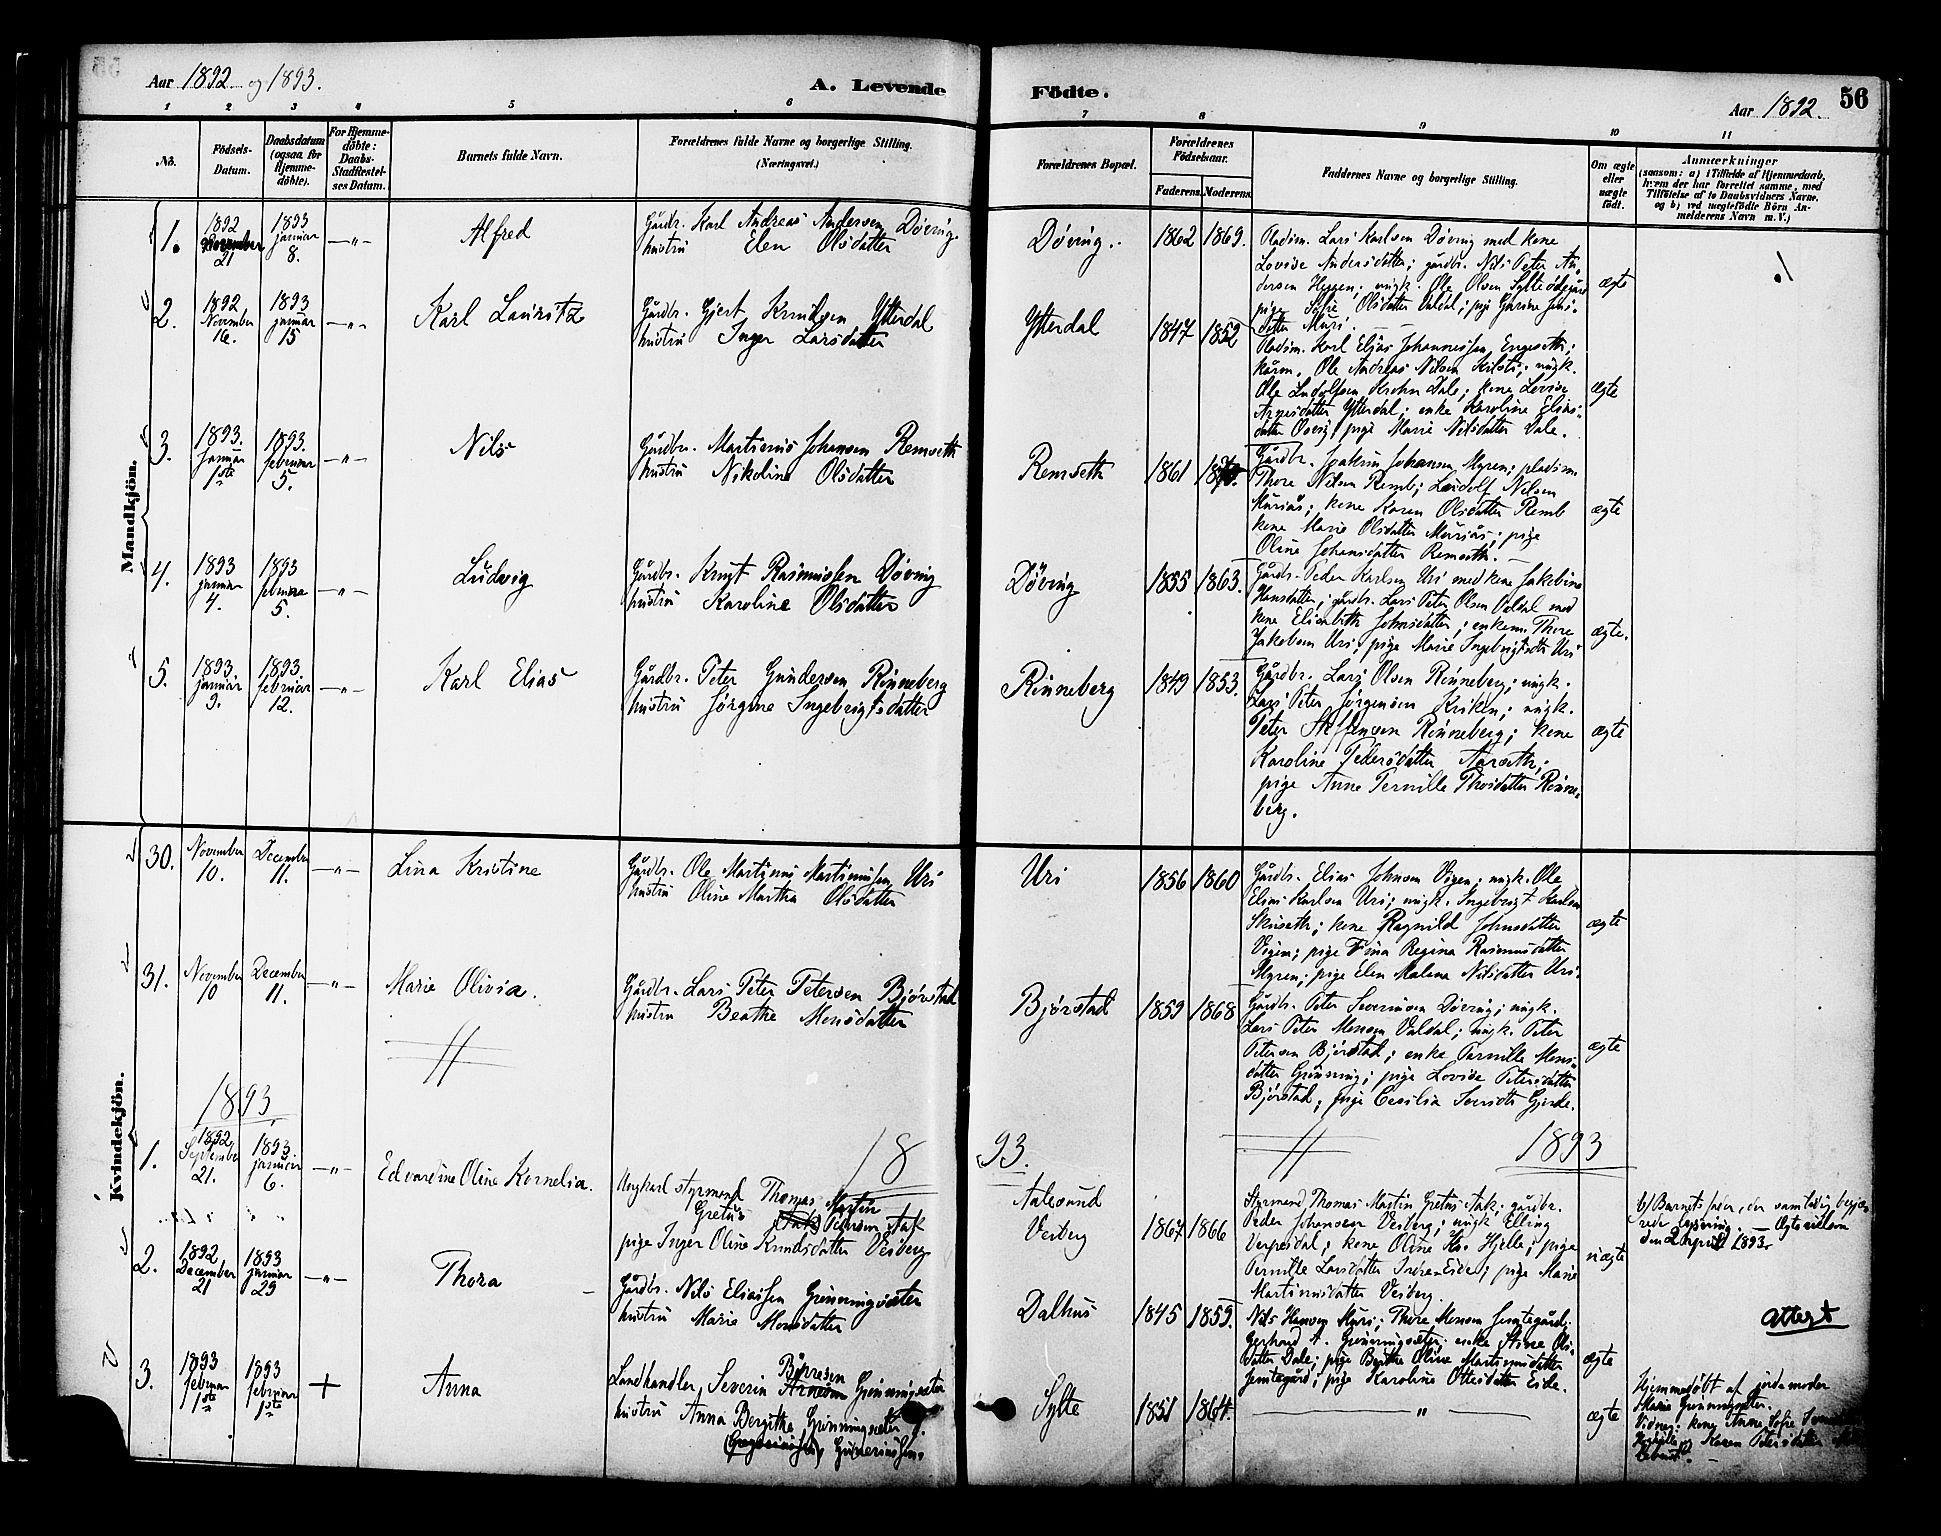 Aar 1892 og 1893.
A. Levende
Födte.
Aar 1892.
56
1 2 3 4 5 6 7 8 9 10 11
No.
Födsels-Datum.
Daabsdatum (ogsaa for Hjemme-döbte).
For Hjemme-döbte: Daabs-Stadfæstel-ses Datum.
Barnets fulde Navn.
Forældrenes fulde Navne og borgerlige Stilling.
(Næringsvei.)
Forældrenes Bopæl.
Forældrenes Födselsaar.
Faderens. Moderens.
Faddernes Navne og borgerlige Stilling.
Om ægte eller uægte födt.
Anmærkninger
(saasom: a) i Tilfælde af Hjemmedaab,
hvem der har forrettet samme, med
Tilföielse af to Daabsvidners Navne,
og b) ved uægtefödte Börn An-
melderens Navn m. V.)
Mandkjön.
1.
1892
21
1893
januar
8.
Alfred
Gårdbr. Karl Andreas Andersen Døving
hustru Elen Olsdatter
Døving.
1862 1869.
Pladsm. Lars Karlsen Døving med kone
Lovise Andersdatter; gårdbr. Nils Peter An-
dersen Heggen; ungk. Ole Olsen Sylte
pige Sofie Olsdatter Valdal; pige
datter Muri.
ægte
2.
1892
November
16.
1893
januar
15
Karl Lauritz
Gårdbr. Gjert Knudsen Ytterdal
hustru Inger Larsdatter
Ytterdal
1847 1852
Pladsm. Karl Elias Johannessen Engeseth;
Ole Andreas Nilsen Kilsti; ungk.
Ole Ludolfsen Krohn Dale; kone Lovise
Ytterdal; enke Karoline Elias-
datter; pige Marie Nilsdatter Dale.
ægte
3.
1893.
januar
1ste
1893.
februar
5.
Nils
Gårdbr. Martinus Johansen Remseth
hustru Nikoline Olsdatter
Remseth
1861
Gårdbr. Joakim Johansen Myren; pladsm.
Thore Nilsen Remb; Ludolf Nilsen
Muriås; kone Karen Olsdatter Remb
kone Marie Olsdatter Muriås; pige
Oline Johansdatter Remseth.
ægte
4.
1893
januar
4.
1893
februar
5.
Ludvig
Gårdbr. Knut Rasmussen Døving
hustru Karoline Olsdatter
Døving
1855 1863.
Gårdb. Peder Karlsen Uri med kone Jakobine
Hansdatter; gårdbr. Lars Peter Olsen Valdal med
kone Elisabeth Johnsdatter; enkem. Thore
Jakobsen Uri; pige Marie Ingebrigtsdatter Uri
ægte.
5.
1893.
januar
9.
1893.
februar
12.
Karl Elias
Gårdbr. Peter Gundersen Rønneberg
hustru Jørgine Ingebrigtsdatter
Rønneberg
1849 1853.
Gårdbr. Lars Olsen Rønneberg; ungk.
Lars Peter Jørgensen Kriken; ungk.
Peter Steffensen Rønneberg; kone
Karoline Pedersdatter
pige Anne Pernille Thorsdatter Rønne-
berg.
ægte
Kvindekjön.
30.
November
10.
December
11.
Lina Kristine
Gårdbr. Ole Martinus Martinussen Uri
hustru Oline Martha Olsdatter
Uri
1856 1860
Gårdbr. Elias Johnsen Vigen; ungk. Ole
Elias Karlsen Uri; ungk. Ingebrigt Karlsen
kone Ragnild Johnsdatter
Vigen; pige Fina Regina Rasmusdatter
Myren; pige Elen Malena Nilsdatter Uri.
ægte
31.
November
10
December
11.
Marie Olivia.
Gårdbr. Lars Peter Petersen Bjørstad
hustru Beathe Monsdatter
Bjørstad
1859 1868
Gårdbr. Peter Severinsen Døving; ungk.
Lars Peter Monsen Valdal; ungk. Peter
Petersen Bjørstad; enke Pernille Mons-
datter Grønning; pige Lovise Petersdatter
Bjørstad; pige Cecilia Gjerde.
ægte
1893
1893.
1893
1.
1892
September
21.
1893
januar
6.
Edvardine Oline Kornelia.
Ungkarl styrmand Thomas Martin
Gretus Petersen Aak
pige Inger Oline Knudsdatter Veiberg
Aalesund
Veiberg
1867 1866
Styrmand Thomas Martin Gretus Aak; gårdbr.
Peder Johansen Veiberg; ungk. Elling
Verpesdal; kone Oline Hjelle; pige
Pernille Larsdatter Indre-Eide; pige Marie
Martinusdatter Veiberg.
uægte
b/ Barnets fader, der samtidig begjæ-
rede lysning. — Ægteviet
den 2 april 1893.
2.
1892
December
21
1893
januar
29
Thora
Gårdbr. Nils Eliassen Grønningsæter
hustru Marie Monsdatter
Dalhus
1845 1859.
Nils Hansen Muri; Thore Monsen Jemtegård;
Gerhard A. Grønningsæter; enke Stine Ols-
datter Dale; pige Berthe Oline Martinusdatter
Jemtegård; pige Karoline Ottesdatter Eide.
ægte
Attest
3.
1893
februar
1ste
1893
februar
1ste
+
Anna
Landhandler Severin Grønningsæter
hustru Anna Bergitha Grønningsæter
Sylte
1851 1864.
"
ægte
Hjemmedøbt af jordemoder
Marie Grønningsæter.
Vidner: kone Anne Sofie
Karen Petersdatter